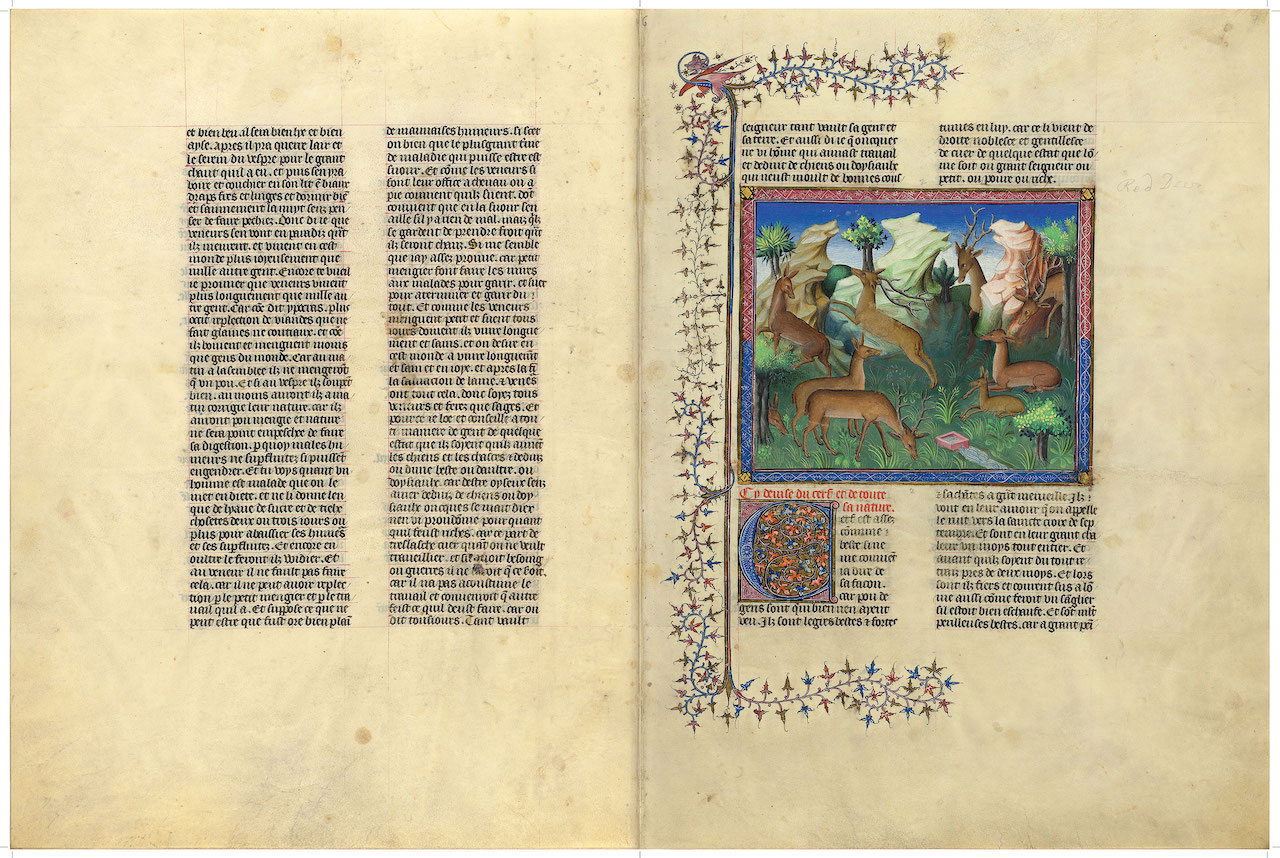 et bien beu. il sera bien lie et bien
ayse. apres il yra querre lair et
le serein du vespre pour le grant
chaut quil a eu. et puis sen yra
boire et couchier en son lit
draps frés et linges et dormir bié
et sainnement la nuyt senz pen
ser de faire pechiez. Donc di ie que
veneurs sen vont en paradiz quāt
ilz meurent. et vivent en cest
monde plus ioyeusement que
nulle autre gent. Encore te vueil
ie prouuer que veneurs vivent
plus longuement que nulle au
tre gent. Car dit ypocras. plus
occit repletion de viandes que ne
fait glaives ne coutiaux. et
ilz boivent et menguent moins
que gens du monde. Car au ma
tin a lasemblee ilz ne mengeront
q̄ un pou. Et si au vespre ilz soupēt
bien. au moins auront ilz a ma
tin corrigie leur nature. car ilz
auront pou mengie et nature
ne sera point empeschee de faire
sa digestion. p quoy males hu
meurs ne supfluitez si puissent
engendrer. Et tu voys quant un
homme est malade que on le
met en diete. et ne li donne len
que de lyaue de sucre et de tielx
chosetes deux ou trois iours ou
plus pour abaissier ses humeurs
et ses supfluitez. Et encore en
oultre le feront ilz widier. Et
au veneur il ne fault pas faire
cela. car il ne peut auoir replec
tion p le petit mengier et p le tra
uail quil a. Et suppose ce que ne
peut estre que fust ore bien plain
de mauuaises humeurs. si scet
on bien que le plusgrant
de maladie qui puisse estre est
suour. Et cōme les veneurs si
font leur office a cheual ou a
pie comment quilz suent. dōt
conuient que en la suour sen
aille sil y a rien de mal. maiz q̄lz
se gardent de prendre froit qūt
ilz seront chauz. Si me semble
que iay assez prouue. car petit
mengier font faire les mires
aux malades pour garir. et suer
pour aterminer et garir du
tout. Et comme les veneurs
menguent petit et suent tous
iours doiuent ilz viure longue
ment et sains. et on desire en
cest monde a viure longuemēt
et sain et en ioye. et apres la
la sauuacion de lame. et veneurs
ont tout cela. donc soyez tous
veneurs et ferez que sages. Et
pource ie loe et conseille a tou
te maniere de gent de quelque
estat que ilz soyent quilz aiment
les chiens et les chasses et deduiz
ou dune beste ou dautre. ou
doysiaulx. car destre oyseux senz
amer deduiz de chiens ou doy
siaulx oncques se maist dieu
nen vi preudōme pour quant
quil feust riches. car ce part de
treslasche cuer quāt on ne veult
traveillier. et sil auoit besoing
ou guerres il ne sauroit q̄ ce soit.
car il na pas acoustume le
trauail et conuenroit q̄ autre
feist ce quil deust faire. car on
dit tousiours. Tant vault
seigneur tant vault sa gent et
sa terre. Et aussi di ie q̄ oncques
ne vi hōme qui amast trauail
et deduit de chiens ou doysiaulx
qui neust moult de bonnes cous
tumes en luy. car ce li vient de
droite noblesce et gentillesce
de cuer de quelque estat que lō
me soit ou grant seigneur ou
petit. ou poure ou riche.
Red Deer
Cy deuise du cerf et de toute
sa nature.
Cerf est assez
cōmune
beste si ne
me conuiēt
ia dire de
sa facon.
car pou de
gens sont qui bien nen ayent
veu. Ilz sont legieres bestes et fortes
et sachātes a grāt merueille. Ilz
vont en leur amour q̄ on appelle
le ruit vers la saincte croix de sep
tembre. Et sont en leur grant cha
leur un moys tout entier. Et
auant quilz soyent du tout
pres de deux moys. Et lors
sont ilz fiers et courent sus a lō
me aussi cōme feroit un sāglier
sil estoit bien eschaufe. Et sōt mlt
perilleuses bestes. car a grant peī